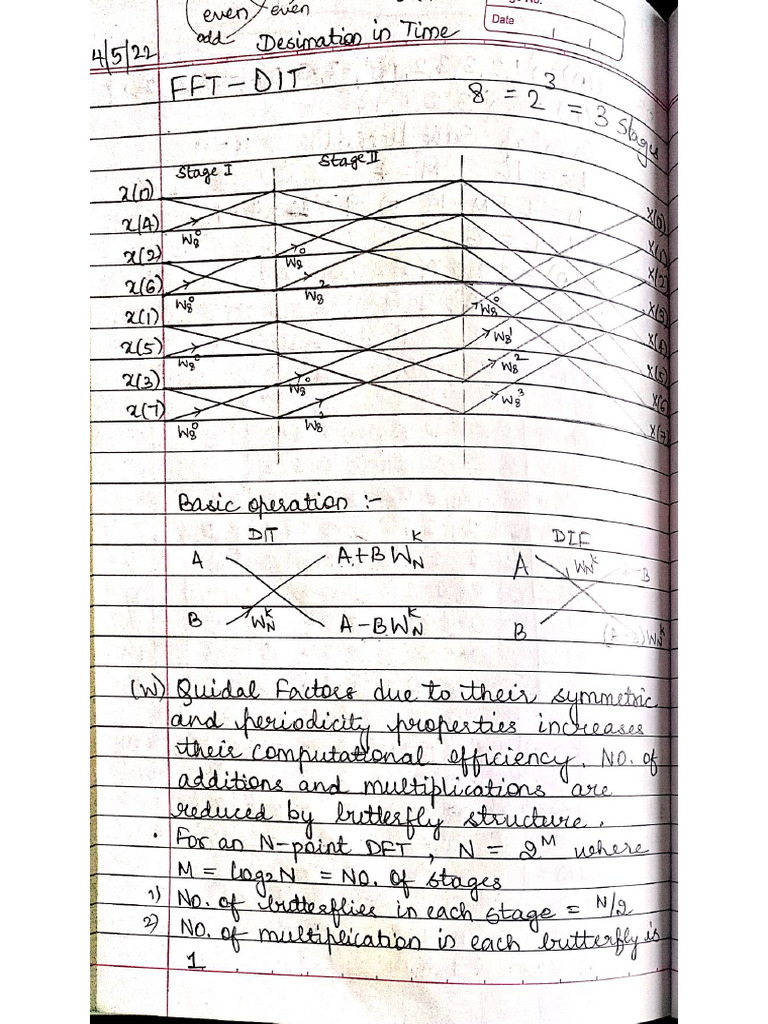 even even
odd Desimation in Time
Date
4/5/22
FFT-DIT
8 = 2³ = 3 Stages
Stage I Stage II
x(0)
x(4)
x(2)
x(6)
x(1)
x(5)
x(3)
x(7)
W₈⁰
W₈⁰
W₈⁰
W₈⁰
W₈⁰
W₈²
W₈⁰
W₈²
W₈⁰
W₈¹
W₈²
W₈³
X(0)
X(1)
X(2)
X(3)
X(4)
X(5)
X(6)
X(7)
Basic operation :-
DIT DIF
A A+BW_N^K A W_N^K B
B W_N^K A-BW_N^K B W_N^K
(W) Quidal Factors due to their symmetric
and periodicity properties increases
their computational efficiency. NO. of
additions and multiplications are
reduced by butterfly structure.
• For an N-point DFT, N = 2^M where
M = log₂N = NO. of stages
1) No. of butterflies in each stage = N/2
2) NO. of multiplication is each butterfly is
1